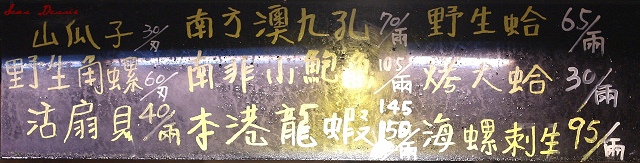 Sean Dennis
山瓜子 30/刃 南方澳九孔 70/兩 野生蛤 65/兩
野生角螺 60/刃 南非小鮑魚 105/兩 烤大蛤 30/兩
活扇貝 40/兩 本港龍蝦 145 150/兩 海螺刺生 95/兩